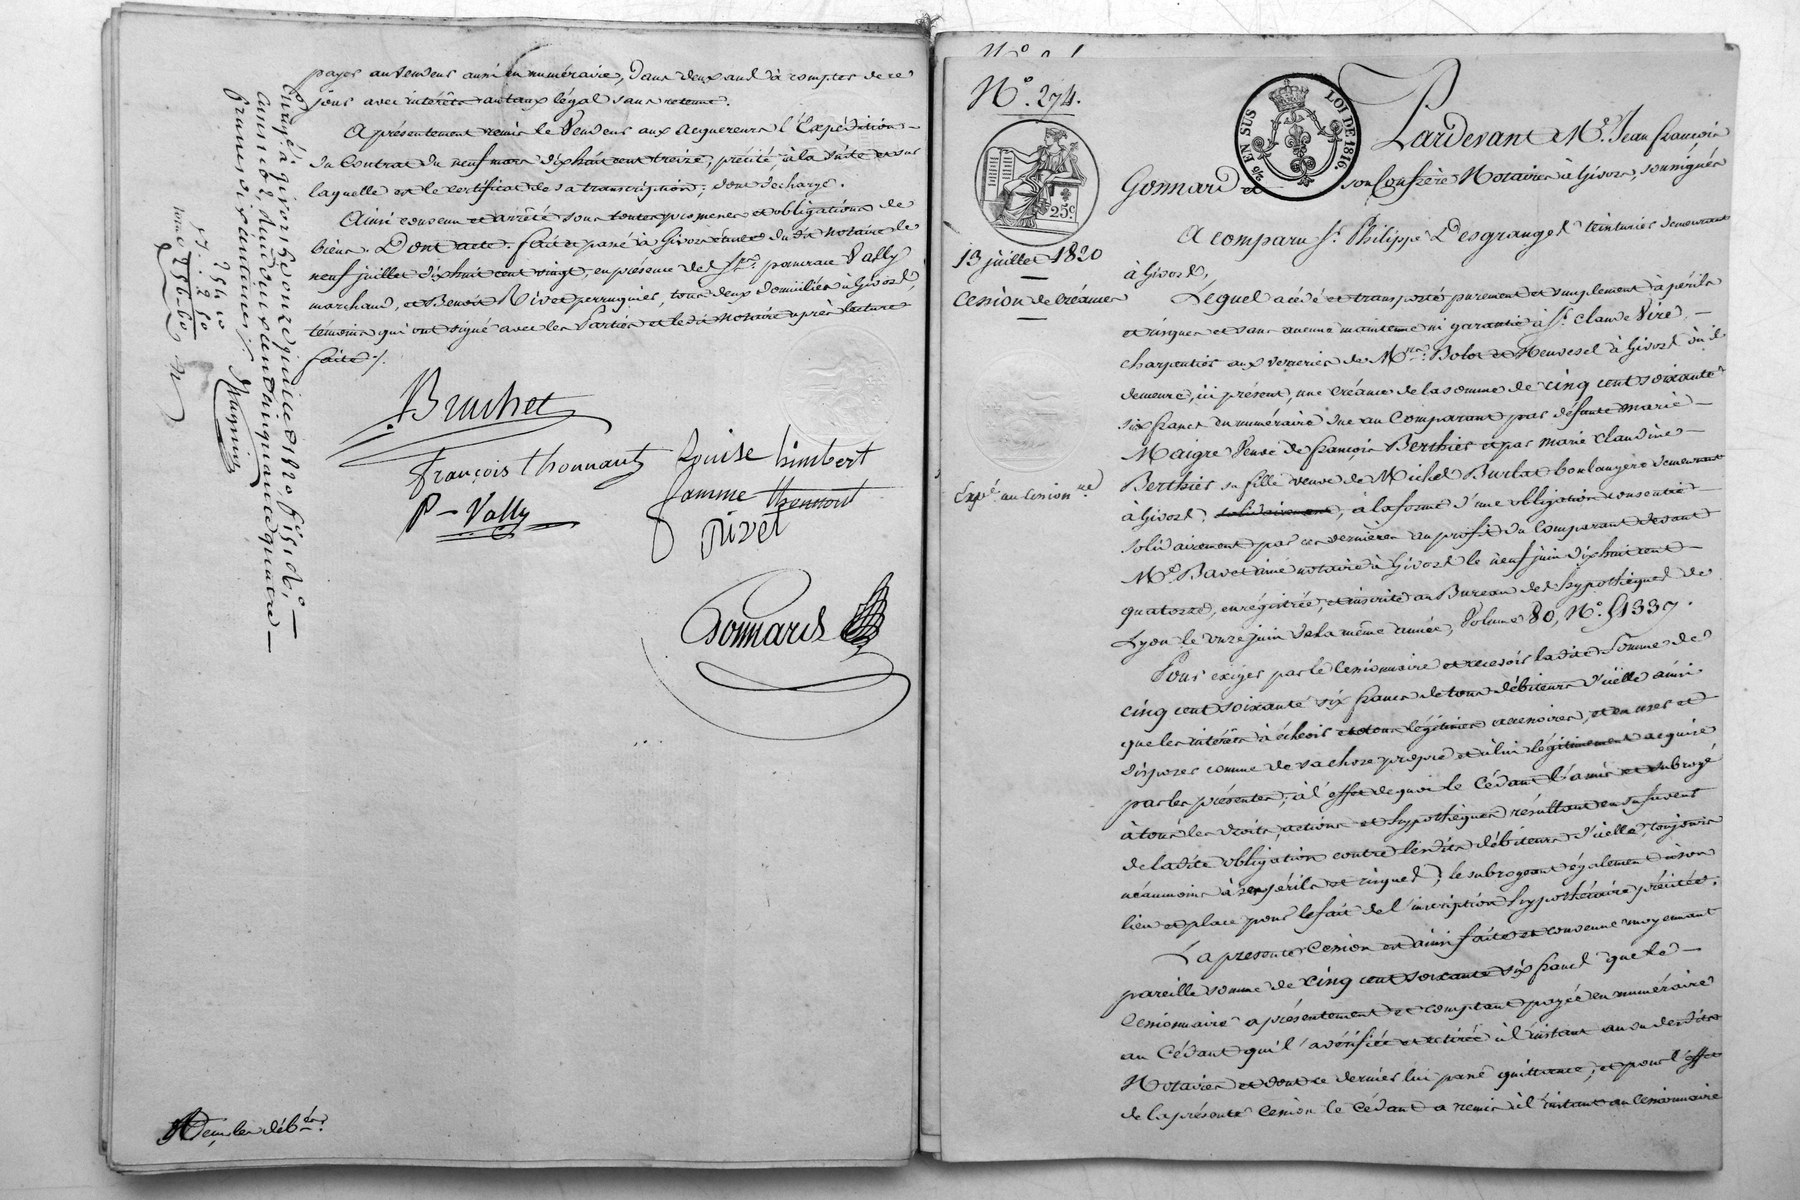 payer au Vendeur aussi en numéraire, dans deux ans à compter de ce
jour avec intérêts au taux légal sans retenue.
A présentement remis le Vendeur aux acquereurs l'Expédition
du Contrat du neuf mars dix huit cent treize, précité, à la suite et sur
laquelle est le certificat de sa transcription; dont décharge.
Ainsi convenu et arrêté sous toutes promesses et obligations de
biens. Dont acte. fait et passé à Givors étude du dit notaire le
neuf juillet dix huit cent vingt, en présence des Srs. pancrace Vally
marchand, et Benoit Rivet perruquier, tous deux domiciliés à Givors,
témoins qui ont signé avec les Parties et le dit Notaire après lecture
faite./.
Bruchet
françois thonnard
Louise himbert
P - Vally
famme thonnard
Rivet
Gonnard
à givors le onze juillet 1820 f°
deux cent cinquante quatre
francs dix centimes
254. 10
N°. 274.
EN SUS
LOI DE 1816.
25c
13 juillet 1820
Cession de Créances
Expé. au cessionre.
Pardevant Me. Jean françois
Gonnard et son Confrère Notaires à Givors, soussignés
A comparu Sr. Philippe Desgranges teinturier demeurant
à Givors,
Lequel a cédé et transporté purement et simplement à périls
et risques et sans aucune maintenue ni garantie à Sr. Claude Viré
charpentier aux verreries de Mrs. Bolot et Neuvesel à Givors où il
demeure, ici présent, une créance de la somme de cinq cent soixante
six francs en numéraire due au Comparant par défunte marie
Maigre Veuve de françois Berthier et par marie Claudine
Berthier sa fille veuve de Michel Burlat boulangère demeurant
à Givors, solidairement, à la forme d'une obligation consentie
solidairement par ces dernières au profit du Comparant devant
Me. Bavet ainé notaire à Givors le neuf juin dix huit cent
quatorze, enregistrée, et inscrite au Bureau des hypothèques de
Lyon le onze juin de la même année, Volume 80, N°. 51339.
Pour exiger par le Cessionnaire et recevoir ladite Somme de
cinq cent soixante six francs de tous débiteurs d'icelle ainsi
que les intérêts à échoir et tous légitimes accessoires, et en user et
disposer comme de sa chose propre et à lui légitimement acquise
par les présentes; à l'effet de quoi le Cédant l'a mis et subrogé
à tous les droits, actions et hypothèques résultant en sa faveur
de ladite obligation contre lesdits débiteurs d'icelle, toujours
néanmoins à ses périls et risques; le subrogeant également à son
lieu et place pour le fait de l'inscription hypothécaire précitée.
La présente Cession est ainsi faite et convenue moyennant
pareille somme de cinq cent soixante six francs que le
Cessionnaire a présentement et comptant payée en numéraire
au Cédant qui l'a vérifiée et retirée à l'instant au vu desdits
Notaires et dont ce dernier lui passe quittance; et pour l'effet
de la présente Cession le Cédant a remis à l'instant au Cessionnaire